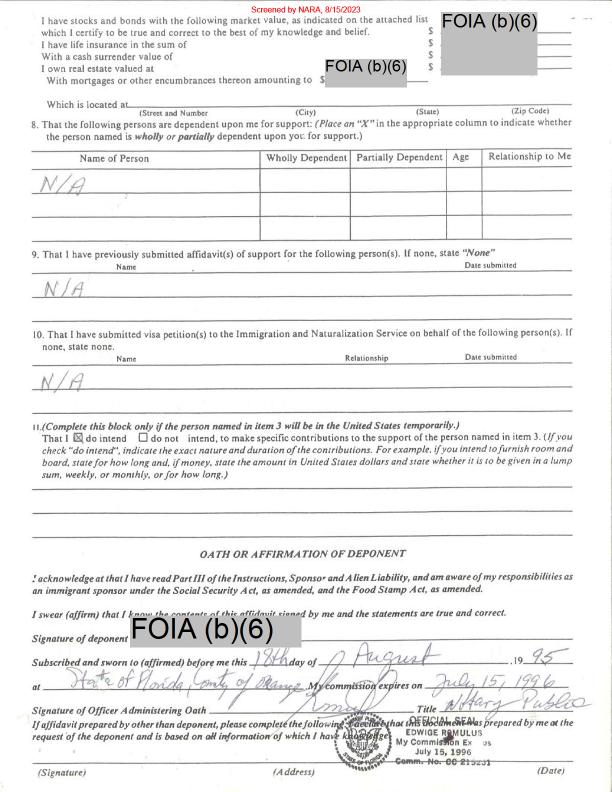 Screened by NARA, 8/15/2023
I have stocks and bonds with the following market value, as indicated on the attached list
which I certify to be true and correct to the best of my knowledge and belief. $ FOIA (b)(6)
I have life insurance in the sum of $
With a cash surrender value of $
I own real estate valued at $
With mortgages or other encumbrances thereon amounting to $ FOIA (b)(6)
Which is located at
(Street and Number) (City) (State) (Zip Code)
8. That the following persons are dependent upon me for support: (Place an "X" in the appropriate column to indicate whether
the person named is wholly or partially dependent upon you for support.)
Name of Person Wholly Dependent Partially Dependent Age Relationship to Me
N/A
9. That I have previously submitted affidavit(s) of support for the following person(s). If none, state "None"
Name Date submitted
N/A
10. That I have submitted visa petition(s) to the Immigration and Naturalization Service on behalf of the following person(s). If
none, state none.
Name Relationship Date submitted
N/A
11.(Complete this block only if the person named in item 3 will be in the United States temporarily.)
That I ☒ do intend ☐ do not intend, to make specific contributions to the support of the person named in item 3. (If you
check "do intend", indicate the exact nature and duration of the contributions. For example, if you intend to furnish room and
board, state for how long and, if money, state the amount in United States dollars and state whether it is to be given in a lump
sum, weekly, or monthly, or for how long.)
OATH OR AFFIRMATION OF DEPONENT
I acknowledge at that I have read Part III of the Instructions, Sponsor and Alien Liability, and am aware of my responsibilities as
an immigrant sponsor under the Social Security Act, as amended, and the Food Stamp Act, as amended.
I swear (affirm) that I know the contents of this affidavit signed by me and the statements are true and correct.
Signature of deponent FOIA (b)(6)
Subscribed and sworn to (affirmed) before me this 18th day of August .19 95
at State of Florida, County of Orange My commission expires on July 15, 1996
Signature of Officer Administering Oath Title Notary Public
If affidavit prepared by other than deponent, please complete the following: I declare that this document was prepared by me at the
request of the deponent and is based on all information of which I have knowledge.
OFFICIAL SEAL
EDWIGE ROMULUS
My Commission Ex us
July 15, 1996
Comm. No. CC 215231
STATE OF FLORIDA
(Signature) (Address) (Date)